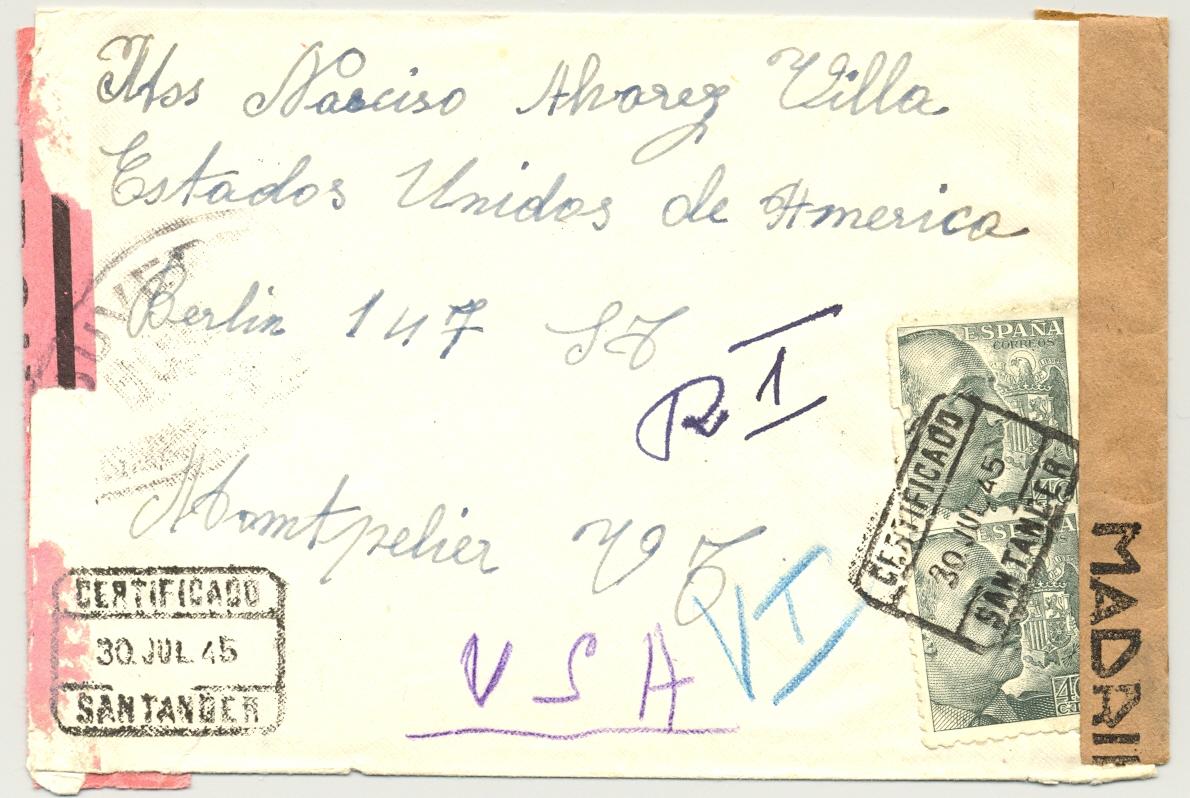 Mss Narciso Alvarez Villa
Estados Unidos de America
Berlin 147 ST
R I
Montpelier
VT
USA
ESPAÑA
CORREOS
40
ESPAÑA
40
CTS
CERTIFICADO
30 JUL. 45
SANTANDER
CERTIFICADO
30 JUL. 45
SANTANDER
MADRI